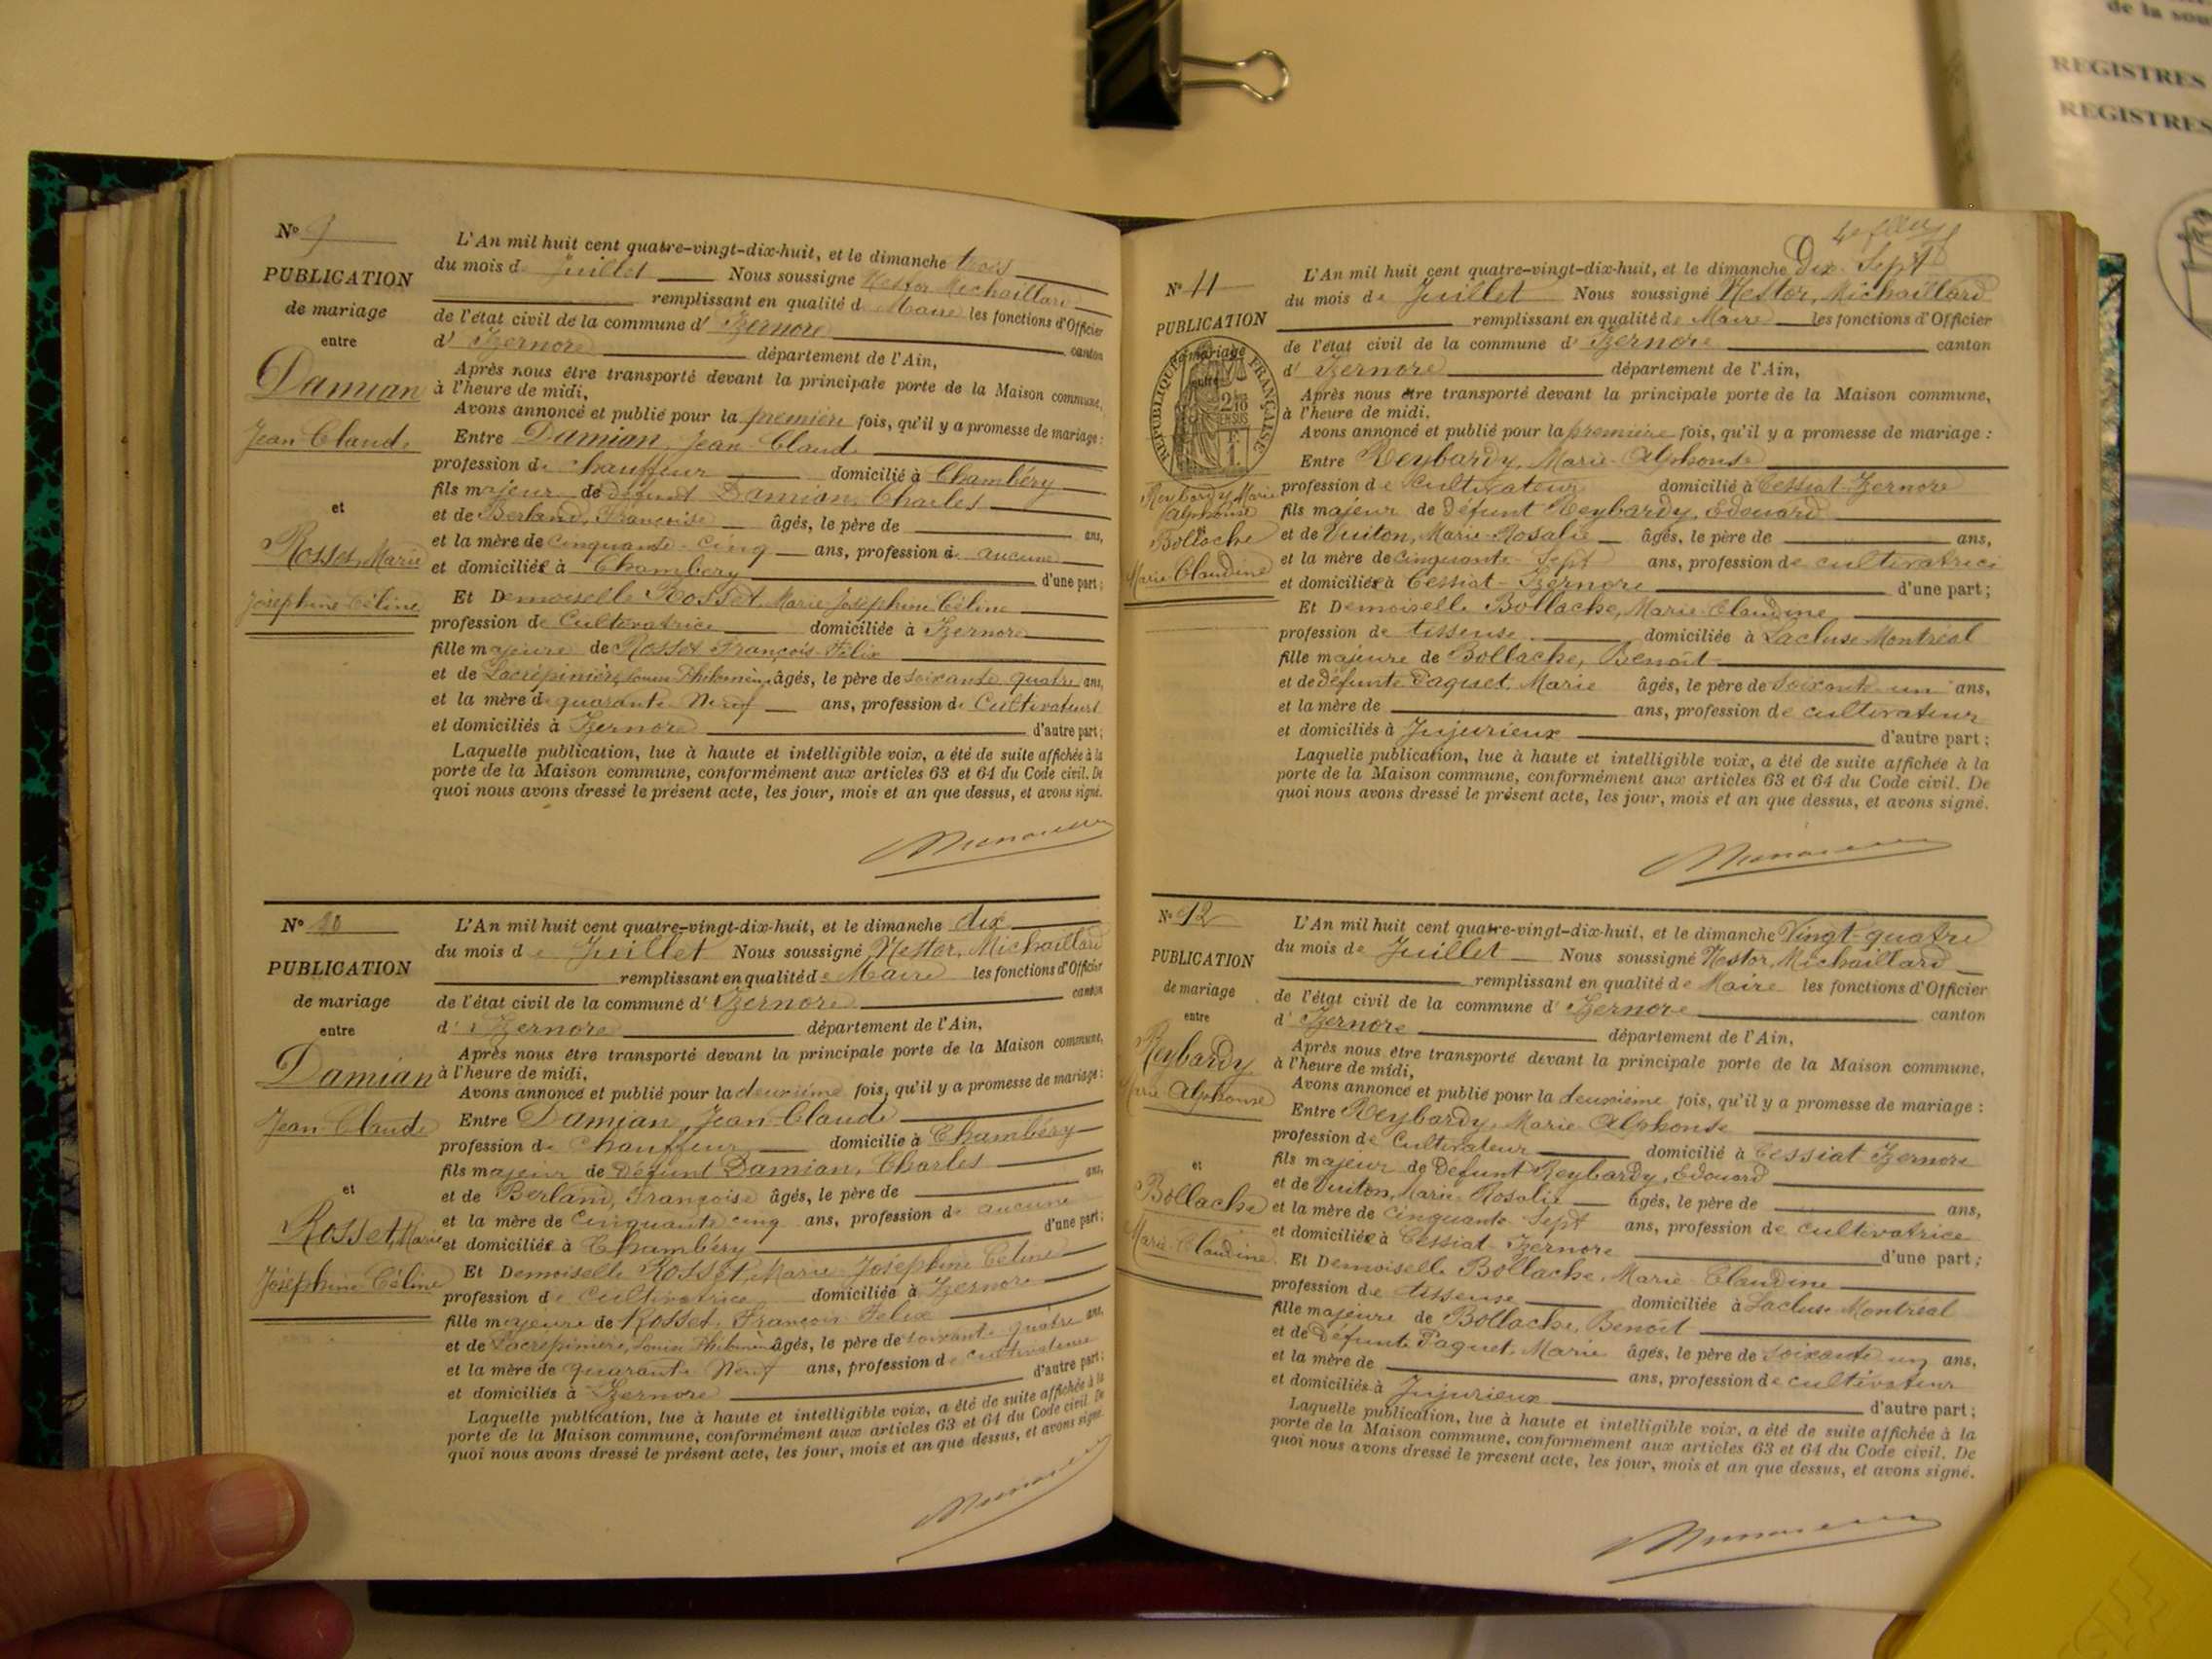 de la sou
REGISTRES
REGISTRES
N° 9
PUBLICATION
de mariage
entre
Damian
Jean Claude
et
Rosset, Marie
Joséphine Céline
L'An mil huit cent quatre-vingt-dix-huit, et le dimanche trois
du mois de Juillet Nous soussigné Nestor Michaillard
remplissant en qualité de Maire les fonctions d'Officier
de l'état civil de la commune d' Izernore canton
d' Izernore département de l'Ain,
Après nous être transporté devant la principale porte de la Maison commune,
à l'heure de midi,
Avons annoncé et publié pour la première fois, qu'il y a promesse de mariage :
Entre Damian, Jean Claude
profession de chauffeur domicilié à Chambéry
fils majeur de défunt Damian, Charles
et de Berland, Françoise âgés, le père de ans,
et la mère de cinquante-cinq ans, profession de aucune
et domiciliée à Chambéry d'une part ;
Et Demoiselle Rosset, Marie Joséphine Céline
profession de Cultivatrice domiciliée à Izernore
fille majeure de Rosset François Félix
et de Lacrépinière, Louise Philomène âgés, le père de soixante quatre ans,
et la mère de quarante Neuf ans, profession de Cultivateurs
et domiciliés à Izernore d'autre part ;
Laquelle publication, lue à haute et intelligible voix, a été de suite affichée à la
porte de la Maison commune, conformément aux articles 63 et 64 du Code civil. De
quoi nous avons dressé le présent acte, les jour, mois et an que dessus, et avons signé.
N° 10
PUBLICATION
de mariage
entre
Damian
Jean Claude
et
Rosset, Marie
Joséphine Céline
L'An mil huit cent quatre-vingt-dix-huit, et le dimanche dix
du mois de Juillet Nous soussigné Nestor, Michaillard
remplissant en qualité de Maire les fonctions d'Officier
de l'état civil de la commune d' Izernore canton
d' Izernore département de l'Ain,
Après nous être transporté devant la principale porte de la Maison commune,
à l'heure de midi,
Avons annoncé et publié pour la deuxième fois, qu'il y a promesse de mariage :
Entre Damian, Jean Claude
profession de chauffeur domicilié à Chambéry
fils majeur de Défunt Damian, Charles
et de Berland, Françoise âgés, le père de ans,
et la mère de Cinquante cinq ans, profession de aucune
et domiciliée à Chambéry d'une part ;
Et Demoiselle Rosset, Marie Joséphine Céline
profession de Cultivatrice domiciliée à Izernore
fille majeure de Rosset, François Félix
et de Lacrépinière, Louise Philomène âgés, le père de soixante quatre ans,
et la mère de quarante Neuf ans, profession de cultivateurs
et domiciliés à Izernore d'autre part ;
Laquelle publication, lue à haute et intelligible voix, a été de suite affichée à la
porte de la Maison commune, conformément aux articles 63 et 64 du Code civil. De
quoi nous avons dressé le présent acte, les jour, mois et an que dessus, et avons signé.
N° 11
PUBLICATION
de mariage
entre
REPUBLIQUE FRANÇAISE
Reybardy Marie
Alphonse
et
Bollache
Marie Claudine
L'An mil huit cent quatre-vingt-dix-huit, et le dimanche Dix-Sept
du mois de Juillet Nous soussigné Nestor, Michaillard
remplissant en qualité de Maire les fonctions d'Officier
de l'état civil de la commune d' Izernore canton
d' Izernore département de l'Ain,
Après nous être transporté devant la principale porte de la Maison commune,
à l'heure de midi,
Avons annoncé et publié pour la première fois, qu'il y a promesse de mariage :
Entre Reybardy, Marie-Alphonse
profession de Cultivateur domicilié à Cessiat-Izernore
fils majeur de Défunt Reybardy, Edouard
et de Vuiton, Marie-Rosalie âgés, le père de ans,
et la mère de cinquante-Sept ans, profession de cultivatrice
et domiciliée à Cessiat-Izernore d'une part ;
Et Demoiselle Bollache, Marie-Claudine
profession de tisseuse domiciliée à Lacluse Montréal
fille majeure de Bollache, Benoît
et de défunte Paquet, Marie âgés, le père de soixante un ans,
et la mère de ans, profession de cultivateur
et domiciliés à Jujurieux d'autre part ;
Laquelle publication, lue à haute et intelligible voix, a été de suite affichée à la
porte de la Maison commune, conformément aux articles 63 et 64 du Code civil. De
quoi nous avons dressé le présent acte, les jour, mois et an que dessus, et avons signé.
N° 12
PUBLICATION
de mariage
entre
Reybardy
Marie Alphonse
et
Bollache
Marie-Claudine
L'An mil huit cent quatre-vingt-dix-huit, et le dimanche Vingt-quatre
du mois de Juillet Nous soussigné Nestor, Michaillard
remplissant en qualité de Maire les fonctions d'Officier
de l'état civil de la commune d' Izernore canton
d' Izernore département de l'Ain,
Après nous être transporté devant la principale porte de la Maison commune,
à l'heure de midi,
Avons annoncé et publié pour la deuxième fois, qu'il y a promesse de mariage :
Entre Reybardy, Marie Alphonse
profession de Cultivateur domicilié à Cessiat Izernore
fils majeur de Défunt Reybardy, Edouard
et de Vuiton, Marie Rosalie âgés, le père de ans,
et la mère de cinquante Sept ans, profession de cultivatrice
et domiciliée à Cessiat-Izernore d'une part ;
Et Demoiselle Bollache, Marie-Claudine
profession de tisseuse domiciliée à Lacluse Montréal
fille majeure de Bollache, Benoît
et de défunte Paquet, Marie âgés, le père de soixante un ans,
et la mère de ans, profession de cultivateur
et domiciliés à Jujurieux d'autre part ;
Laquelle publication, lue à haute et intelligible voix, a été de suite affichée à la
porte de la Maison commune, conformément aux articles 63 et 64 du Code civil. De
quoi nous avons dressé le présent acte, les jour, mois et an que dessus, et avons signé.